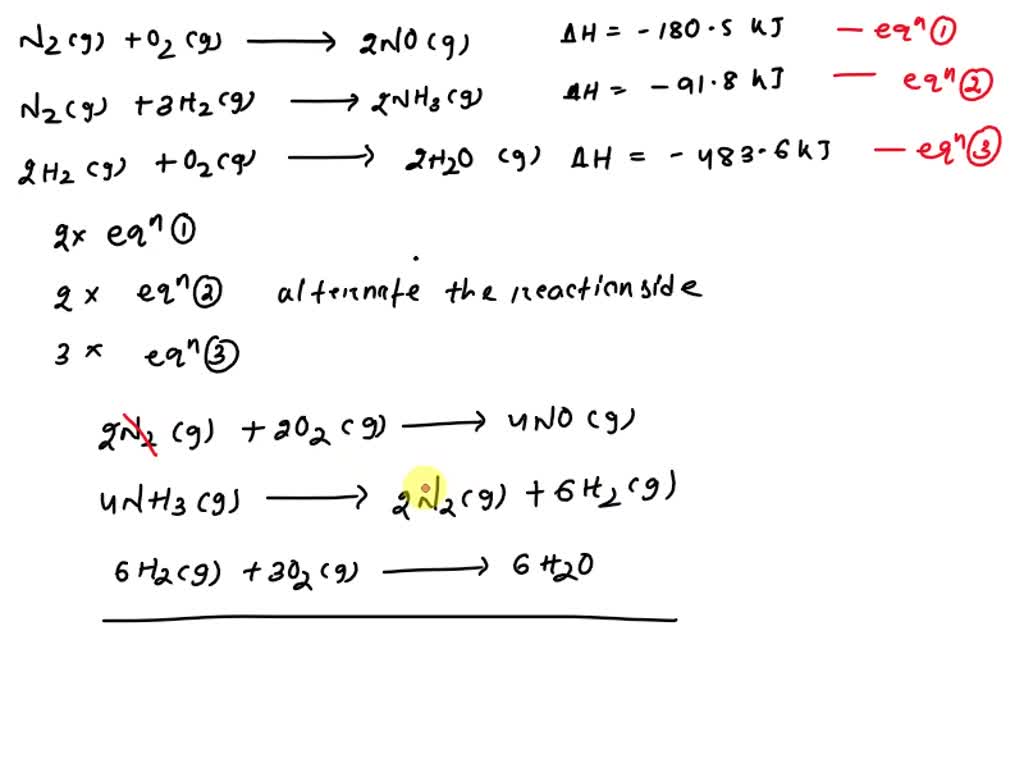 N2(g) + O2(g) ⟶ 2NO(g) ΔH = -180.5 KJ — eqⁿ ①
N2(g) + 3H2(g) ⟶ 2NH3(g) ΔH = -91.8 kJ — eqⁿ ②
2H2(g) + O2(g) ⟶ 2H2O (g) ΔH = -483.6 KJ — eqⁿ ③
2x eqⁿ ①
2 x eqⁿ ② alternate the reaction side
3 x eqⁿ ③
2N2(g) + 2O2(g) ⟶ 4NO(g)
4NH3(g) ⟶ 2N2(g) + 6H2(g)
6H2(g) + 3O2(g) ⟶ 6H2O